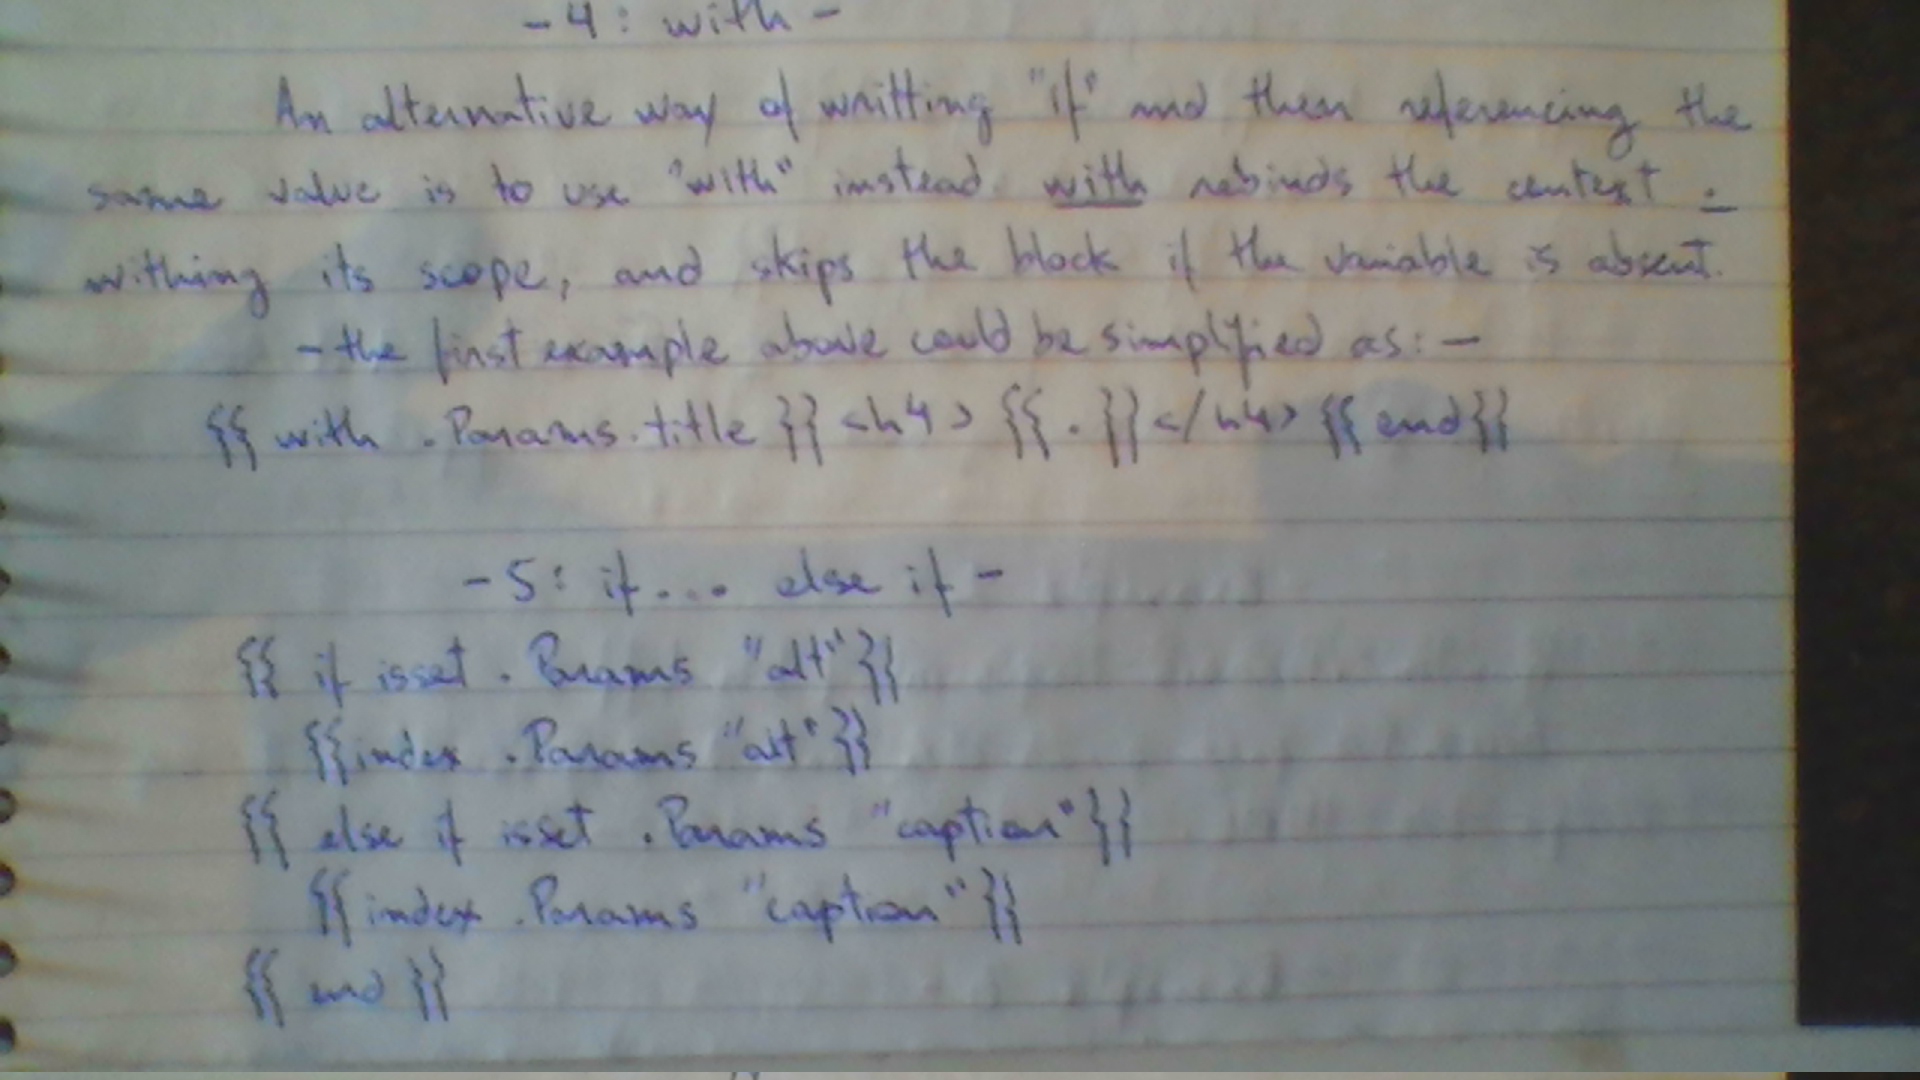 - 4 : with -
An alternative way of writting "if" and then referencing the
same value is to use "with" instead. with rebinds the context .
withing its scope, and skips the block if the variable is absent.
- the first example above could be simplified as: -
{{ with .Params.title }} <h4> {{ . }} </h4> {{ end }}
- 5 : if .... else if -
{{ if isset . Params "alt" }}
{{ index .Params "alt" }}
{{ else if isset .Params "caption" }}
{{ index .Params "caption" }}
{{ end }}